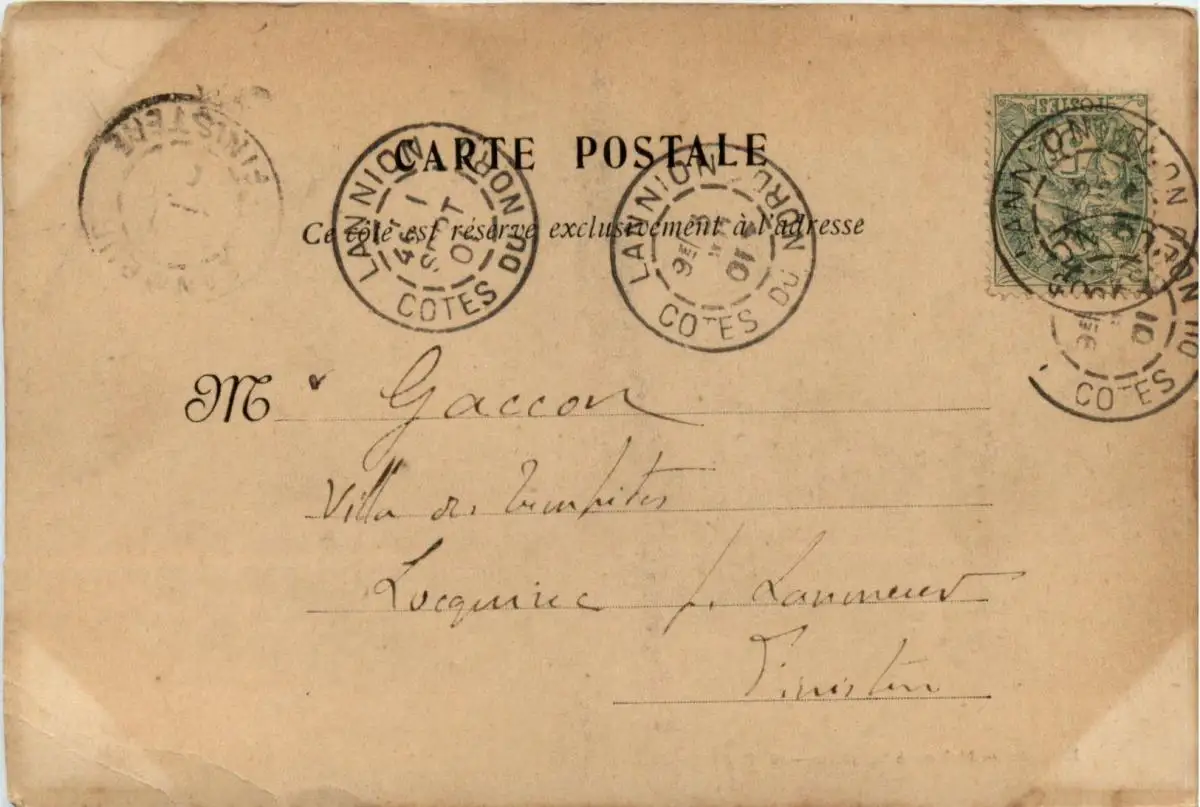 CARTE POSTALE
Ce côté est réservé exclusivement à l'adresse
FINISTERE
LANNION
COTES DU NORD
1
SEPT
LANNION
COTES DU NORD
POSTES
LANNION
COTES DU NORD
M Gaccon
Villa des Tempêtes
Locquirec p. Lanmeur
Finistère